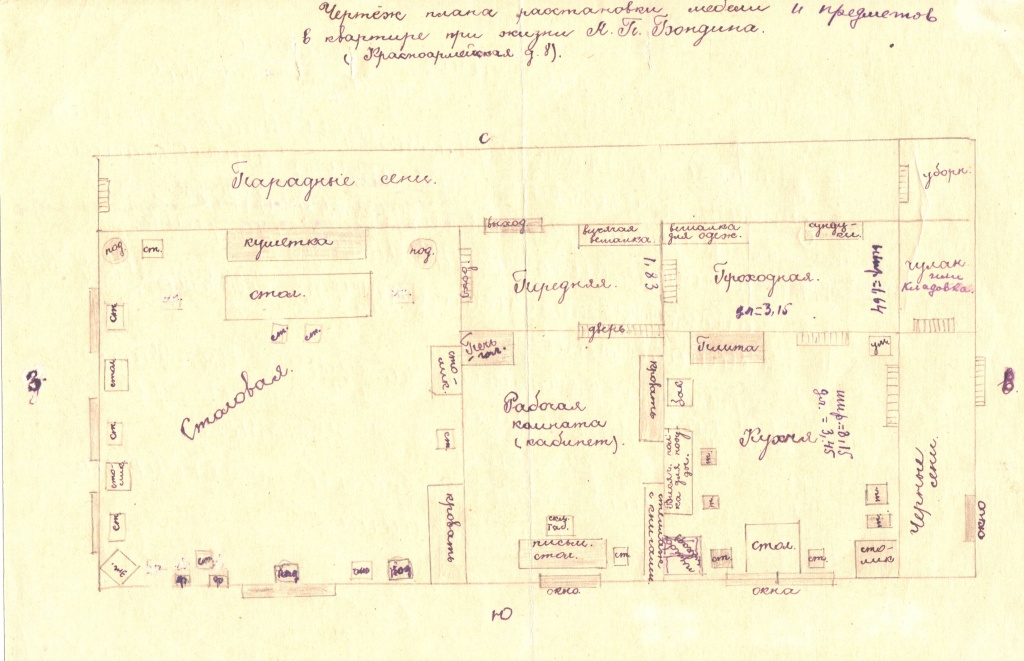 Чертёж плана расстановки мебели и предметов
в квартире при жизни М. П. Бондина.
( Красноармейская д. 8).
С
Парадные сени.
уборн.
выход
висячая
вешалка
вешалка
для одеж.
сунду-
ки.
под.
ст.
кушетка
под.
вход
Передняя.
1,83
Проходная.
дл=3,15
шир=1,64
чулан
или
Кладовка.
стол.
ст
ст.
ст.
дверь
Печь
гол.
Плита
ум
З
стол
Столовая.
сто-
лик.
кровать
Рабочая
комната
(кабинет).
Кухня
шир=8,15
дл. = 3,45
ст
ст.
т.
сто-
лик
т.
т.
т.
ст
кровать
Черные
сени.
окно
с книгами.
письм.
стол.
ст.
ст.
стол.
ст.
сто-
лик
ст.
окно
окна
Ю